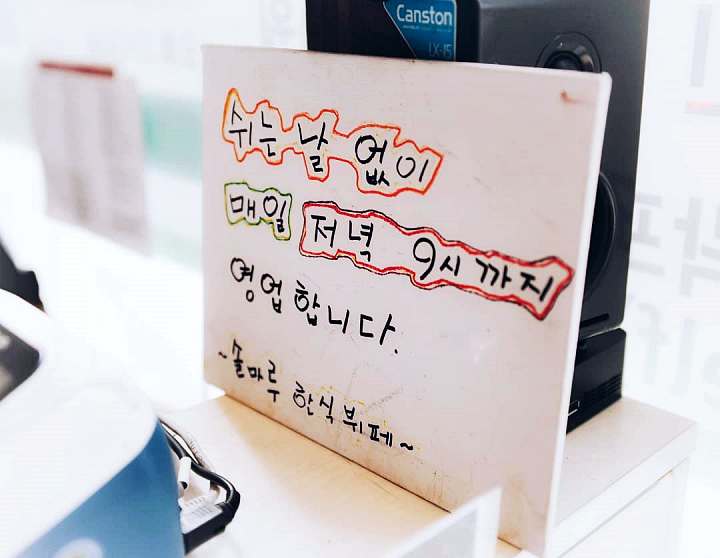 Canston
LX-15
쉬는 날 없이
매일 저녁 9시까지
영업합니다.
~솔마루 한식뷔페~